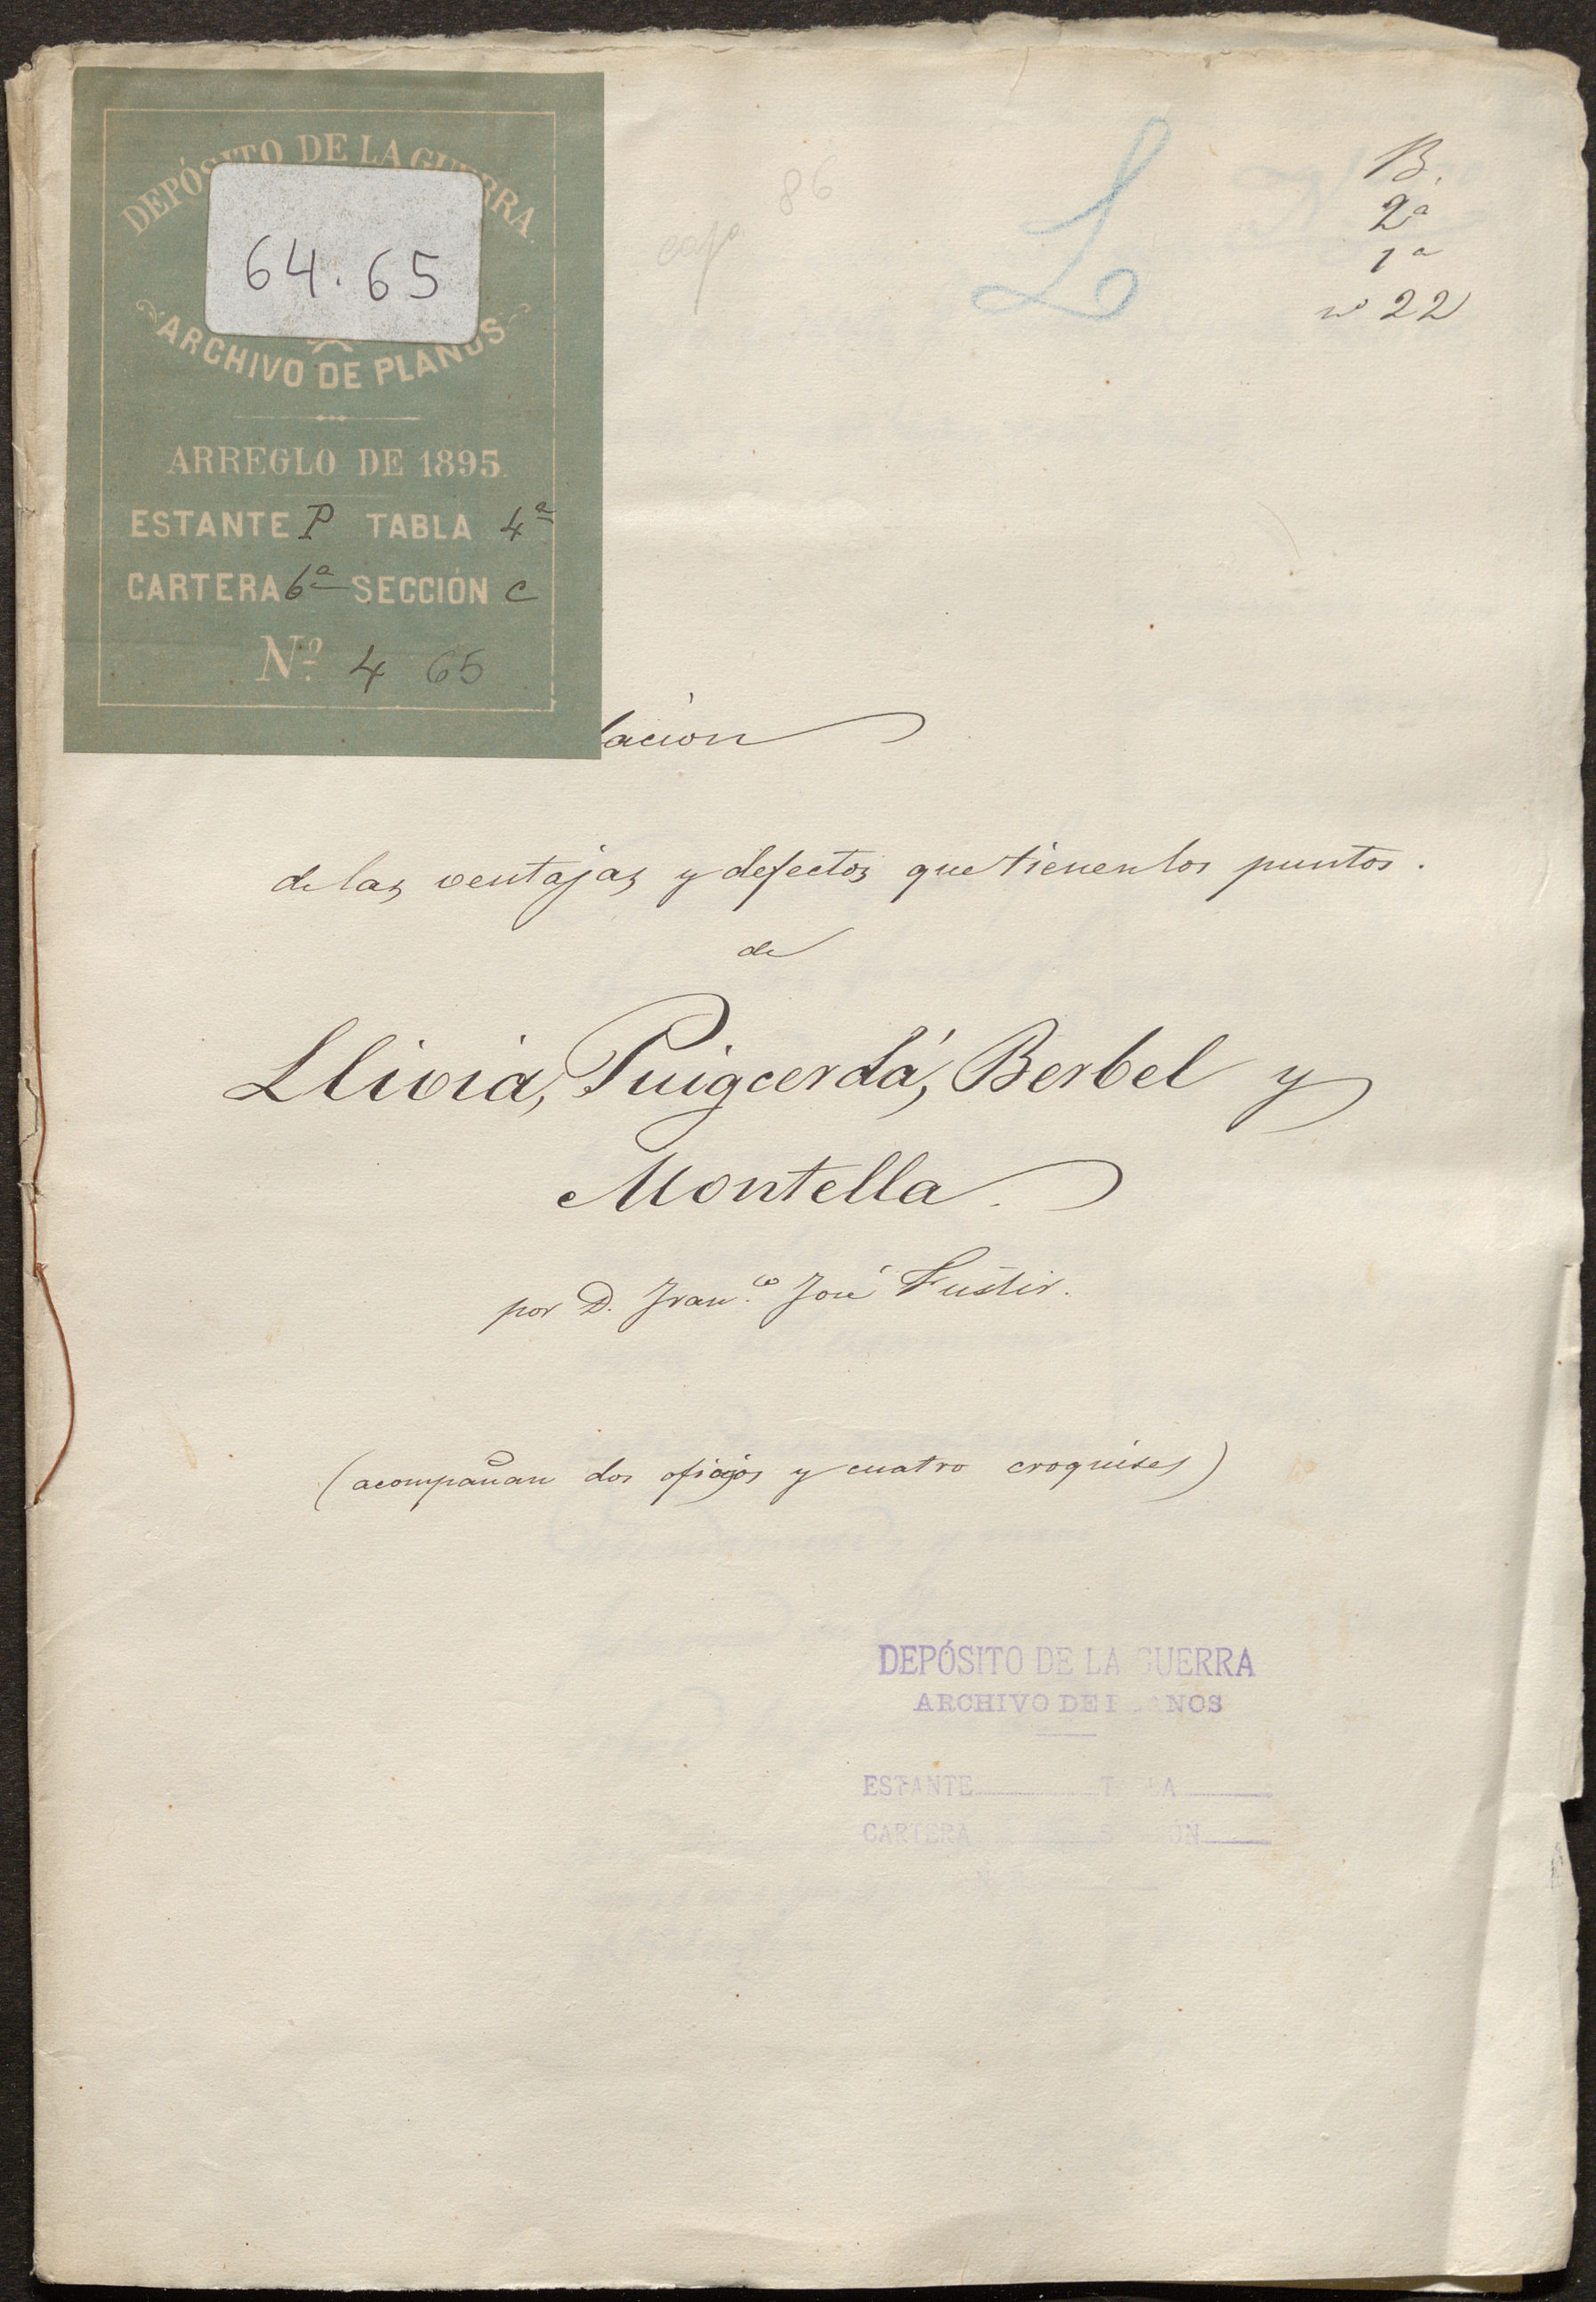 DEPÓSITO DE LA GUERRA.
64.65
ARCHIVO DE PLANOS
ARREGLO DE 1895.
ESTANTE P TABLA 4ª
CARTERA 6ª SECCIÓN C
Nº 4 65
86
caja
L
B.
2ª
1ª
nº 22
lación
de las ventajas y defectos que tienen los puntos.
de
Llivia, Puigcerdá, Berbel y
Montella.
por D. Fran.co José
(acompañan dos oficios y cuatro croquises)
DEPÓSITO DE LA GUERRA
ARCHIVO DE PLANOS
ESTANTE TABLA
CARTERA SECCIÓN